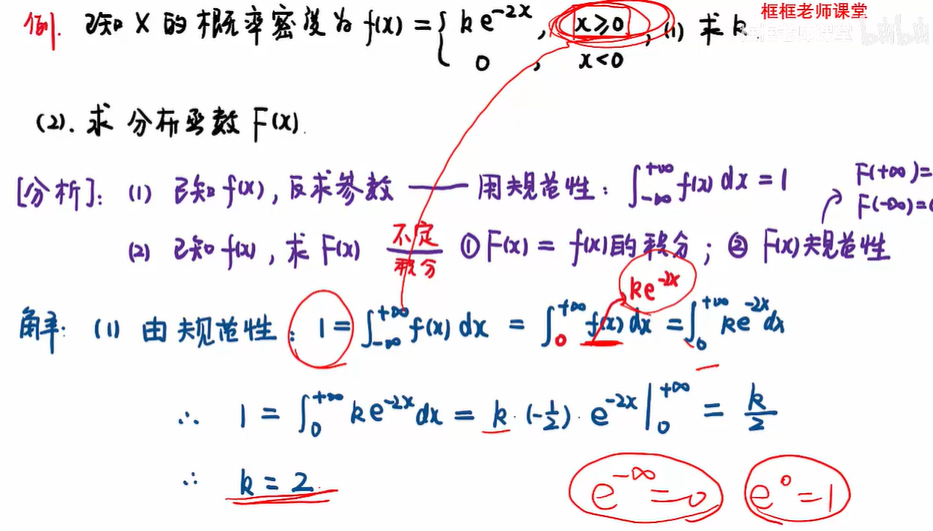 框框老师课堂
例. 已知 X 的概率密度为 f(x) = { ke^{-2x}, x≥0; 0, x<0 , (1) 求 k.
(2). 求分布函数 F(x).
[分析]: (1) 已知 f(x), 反求参数 —— 用规范性: ∫_{-∞}^{+∞} f(x) dx = 1
F(+∞)=
F(-∞)=
(2) 已知 f(x), 求 F(x) 不定积分 ① F(x) = f(x)的积分; ② F(x)规范性
ke^{-2x}
解: (1) 由规范性: 1 = ∫_{-∞}^{+∞} f(x) dx = ∫_0^{+∞} f(x) dx = ∫_0^{+∞} ke^{-2x} dx
∴ 1 = ∫_0^{+∞} ke^{-2x} dx = k·(-1/2)·e^{-2x} |_0^{+∞} = k/2
∴ k = 2.
e^{-∞} = 0 e^0 = 1